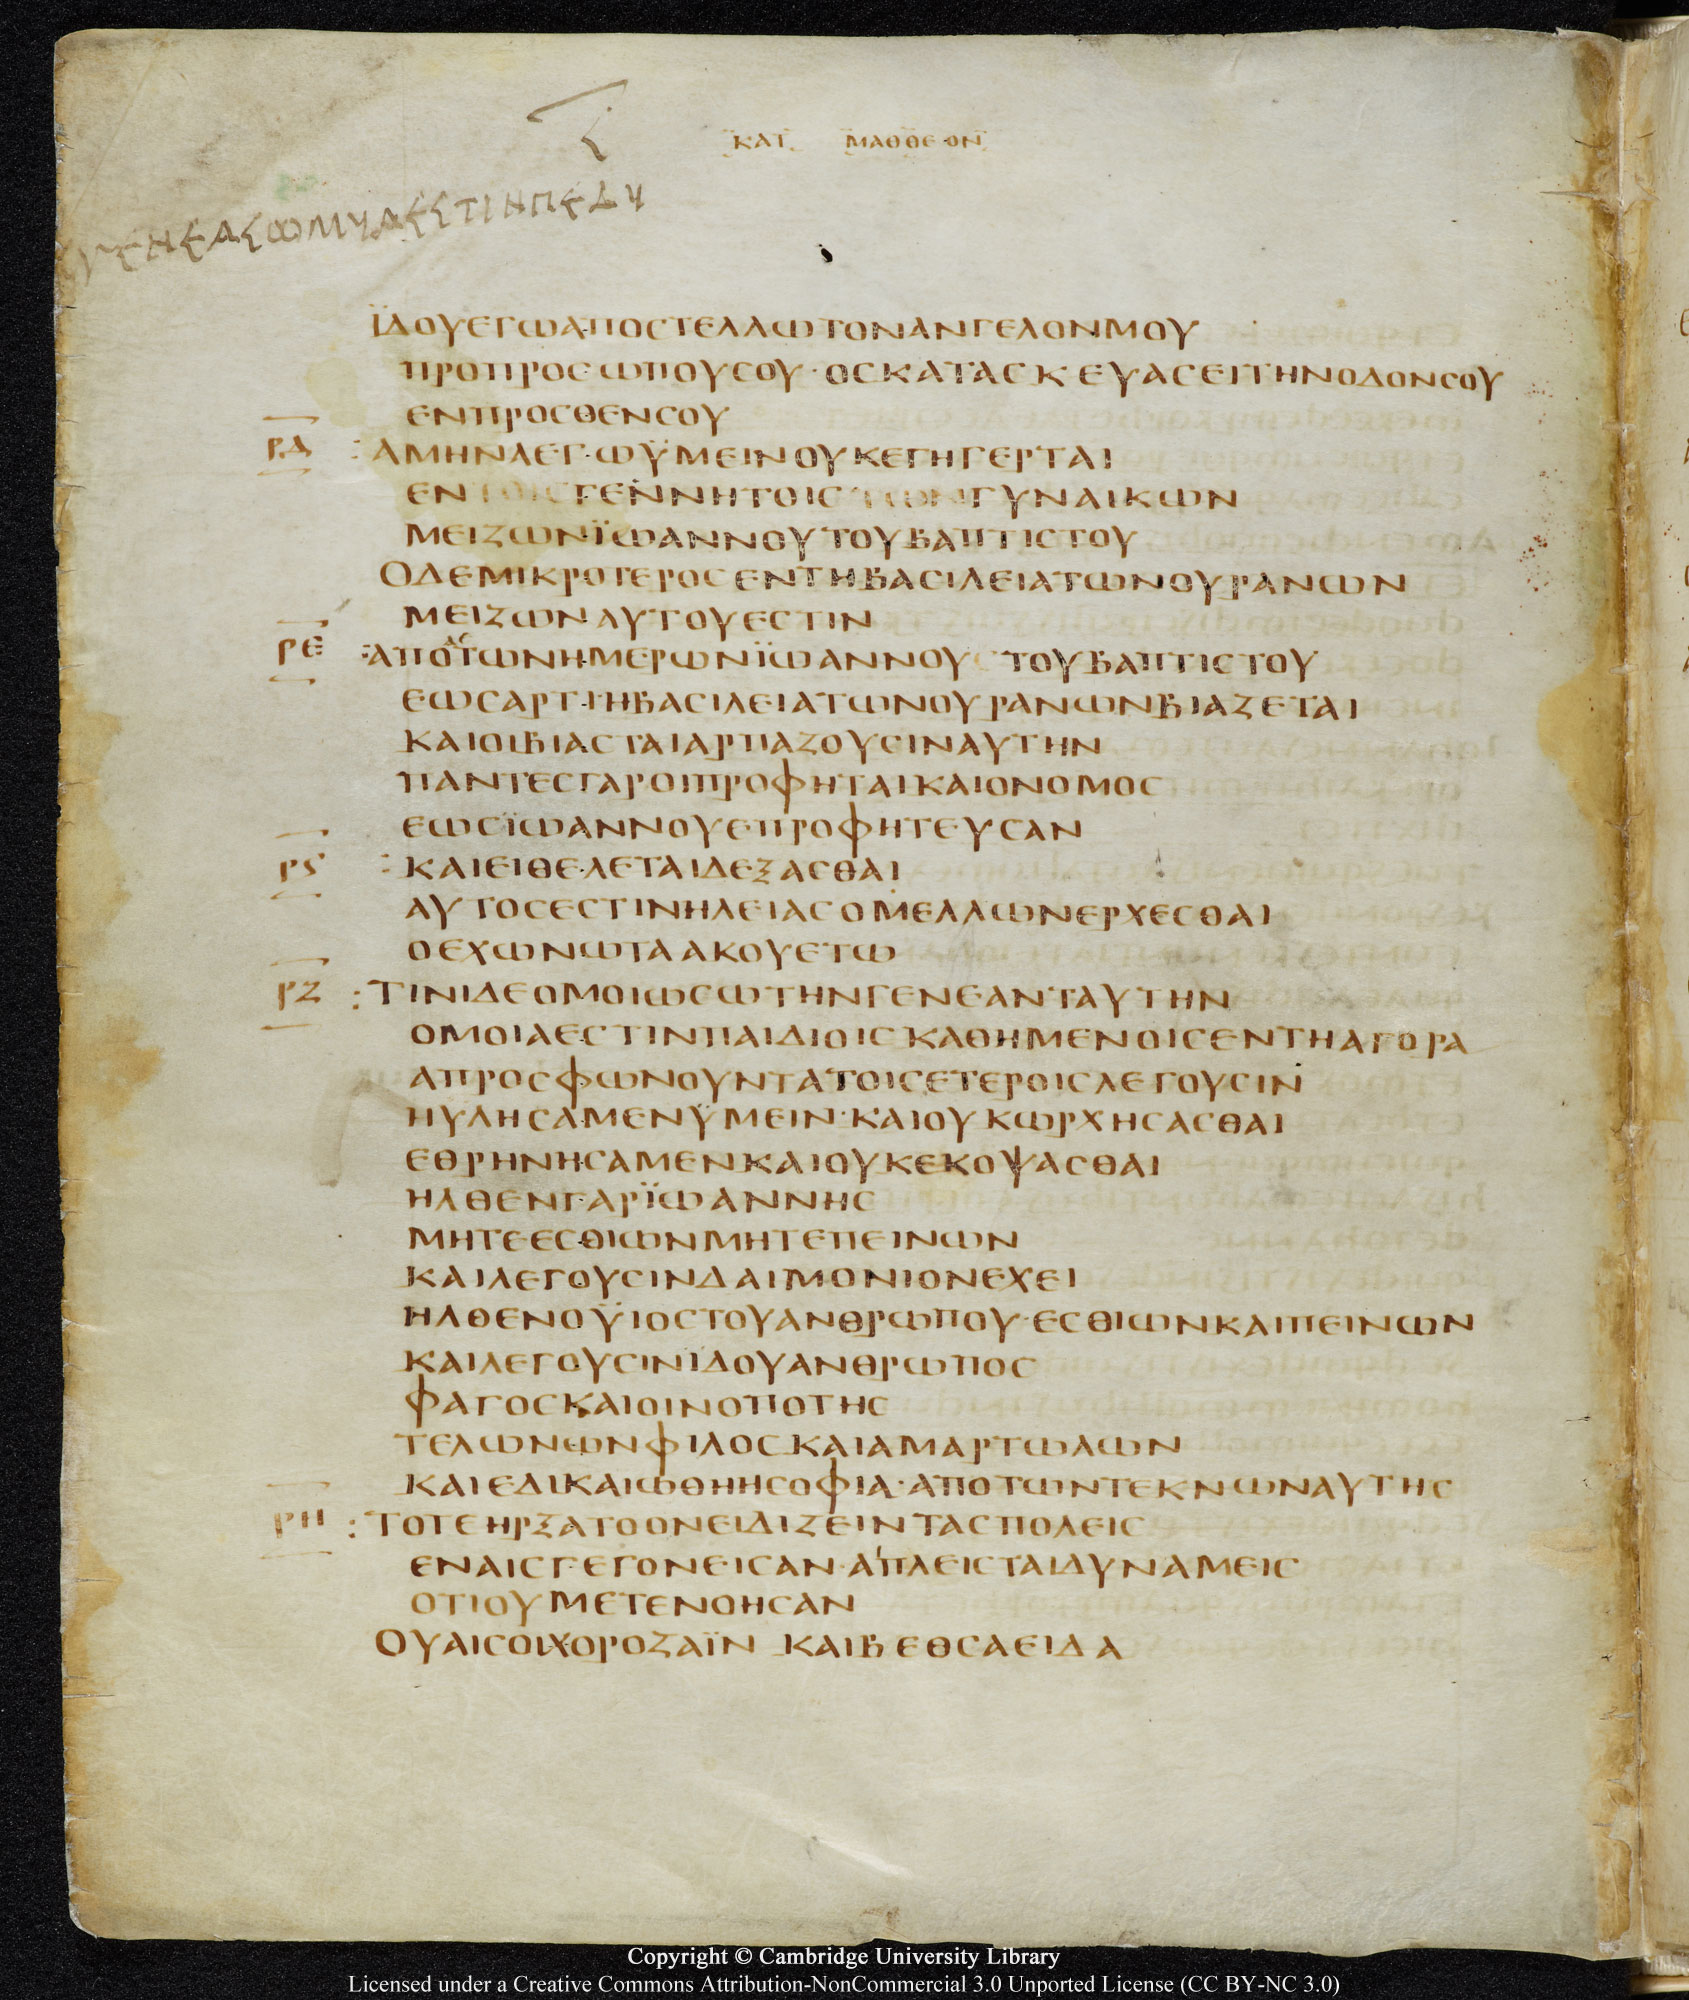 ΚΑΤ ΜΑΘΘΕΟΝ
ΪΔΟΥΕΓΩΑΠΟСΤΕΛΛΩΤΟΝΑΝΓΕΛΟΝΜΟΥ
ΠΡΟΠΡΟСΩΠΟΥСΟΥ·ΟСΚΑΤΑСΚΕΥΑСΕΙΤΗΝΟΔΟΝСΟΥ
ΕΝΠΡΟСΘΕΝСΟΥ
ΡΔ : ΑΜΗΝΛΕΓΩΫΜΕΙΝΟΥΚΕΓΗΓΕΡΤΑΙ
ΕΝΤΟΙСΓΕΝΝΗΤΟΙСΤΩΝΓΥΝΑΙΚΩΝ
ΜΕΙΖΩΝΪΩΑΝΝΟΥΤΟΥΒΑΠΤΙСΤΟΥ
ΟΔΕΜΙΚΡΟΤΕΡΟСΕΝΤΗΒΑСΙΛΕΙΑΤΩΝΟΥΡΑΝΩΝ
ΜΕΙΖΩΝΑΥΤΟΥΕСΤΙΝ
ΡΕ : ΑΠΟΤΩΝΗΜΕΡΩΝΪΩΑΝΝΟΥ ΤΟΥΒΑΠΤΙСΤΟΥ
ΕΩСΑΡΤΙΗΒΑСΙΛΕΙΑΤΩΝΟΥΡΑΝΩΝΒΙΑΖΕΤΑΙ
ΚΑΙΟΙΒΙΑСΤΑΙΑΡΠΑΖΟΥСΙΝΑΥΤΗΝ
ΠΑΝΤΕСΓΑΡΟΙΠΡΟΦΗΤΑΙΚΑΙΟΝΟΜΟС
ΕΩСΪΩΑΝΝΟΥΕΠΡΟΦΗΤΕΥСΑΝ
ΡϚ : ΚΑΙΕΙΘΕΛΕΤΑΙΔΕΞΑСΘΑΙ
ΑΥΤΟСΕСΤΙΝΗΛΕΙΑСΟΜΕΛΛΩΝΕΡΧΕСΘΑΙ
ΟΕΧΩΝΩΤΑΑΚΟΥΕΤΩ
ΡΖ : ΤΙΝΙΔΕΟΜΟΙΩСΩΤΗΝΓΕΝΕΑΝΤΑΥΤΗΝ
ΟΜΟΙΑΕСΤΙΝΠΑΙΔΙΟΙСΚΑΘΗΜΕΝΟΙСΕΝΤΗΑΓΟΡΑ
ΑΠΡΟСΦΩΝΟΥΝΤΑΤΟΙСΕΤΕΡΟΙСΛΕΓΟΥСΙΝ
ΗΥΛΗСΑΜΕΝΫΜΕΙΝ·ΚΑΙΟΥΚΩΡΧΗСΑСΘΑΙ
ΕΘΡΗΝΗСΑΜΕΝΚΑΙΟΥΚΕΚΟΨΑСΘΑΙ
ΗΛΘΕΝΓΑΡΪΩΑΝΝΗС
ΜΗΤΕΕСΘΙΩΝΜΗΤΕΠΕΙΝΩΝ
ΚΑΙΛΕΓΟΥСΙΝΔΑΙΜΟΝΙΟΝΕΧΕΙ
ΗΛΘΕΝΟΫΙΟСΤΟΥΑΝΘΡΩΠΟΥ·ΕСΘΙΩΝΚΑΙΠΕΙΝΩΝ
ΚΑΙΛΕΓΟΥСΙΝΙΔΟΥΑΝΘΡΩΠΟС
ΦΑΓΟСΚΑΙΟΙΝΟΠΟΤΗС
ΤΕΛΩΝΩΝΦΙΛΟСΚΑΙΑΜΑΡΤΩΛΩΝ
ΚΑΙΕΔΙΚΑΙΩΘΗΗСΟΦΙΑ·ΑΠΟΤΩΝΤΕΚΝΩΝΑΥΤΗС
ΡΗ : ΤΟΤΕΗΡΞΑΤΟΟΝΕΙΔΙΖΕΙΝΤΑСΠΟΛΕΙС
ΕΝΑΙСΓΕΓΟΝΕΙСΑΝ·ΑΙΠΛΕΙСΤΑΙΔΥΝΑΜΕΙС
ΟΤΙΟΥΜΕΤΕΝΟΗСΑΝ
ΟΥΑΙСΟΙΧΟΡΟΖΑΪΝ ΚΑΙΒΕΘСΑΕΙΔΑ
Copyright © Cambridge University Library
Licensed under a Creative Commons Attribution-NonCommercial 3.0 Unported License (CC BY-NC 3.0)